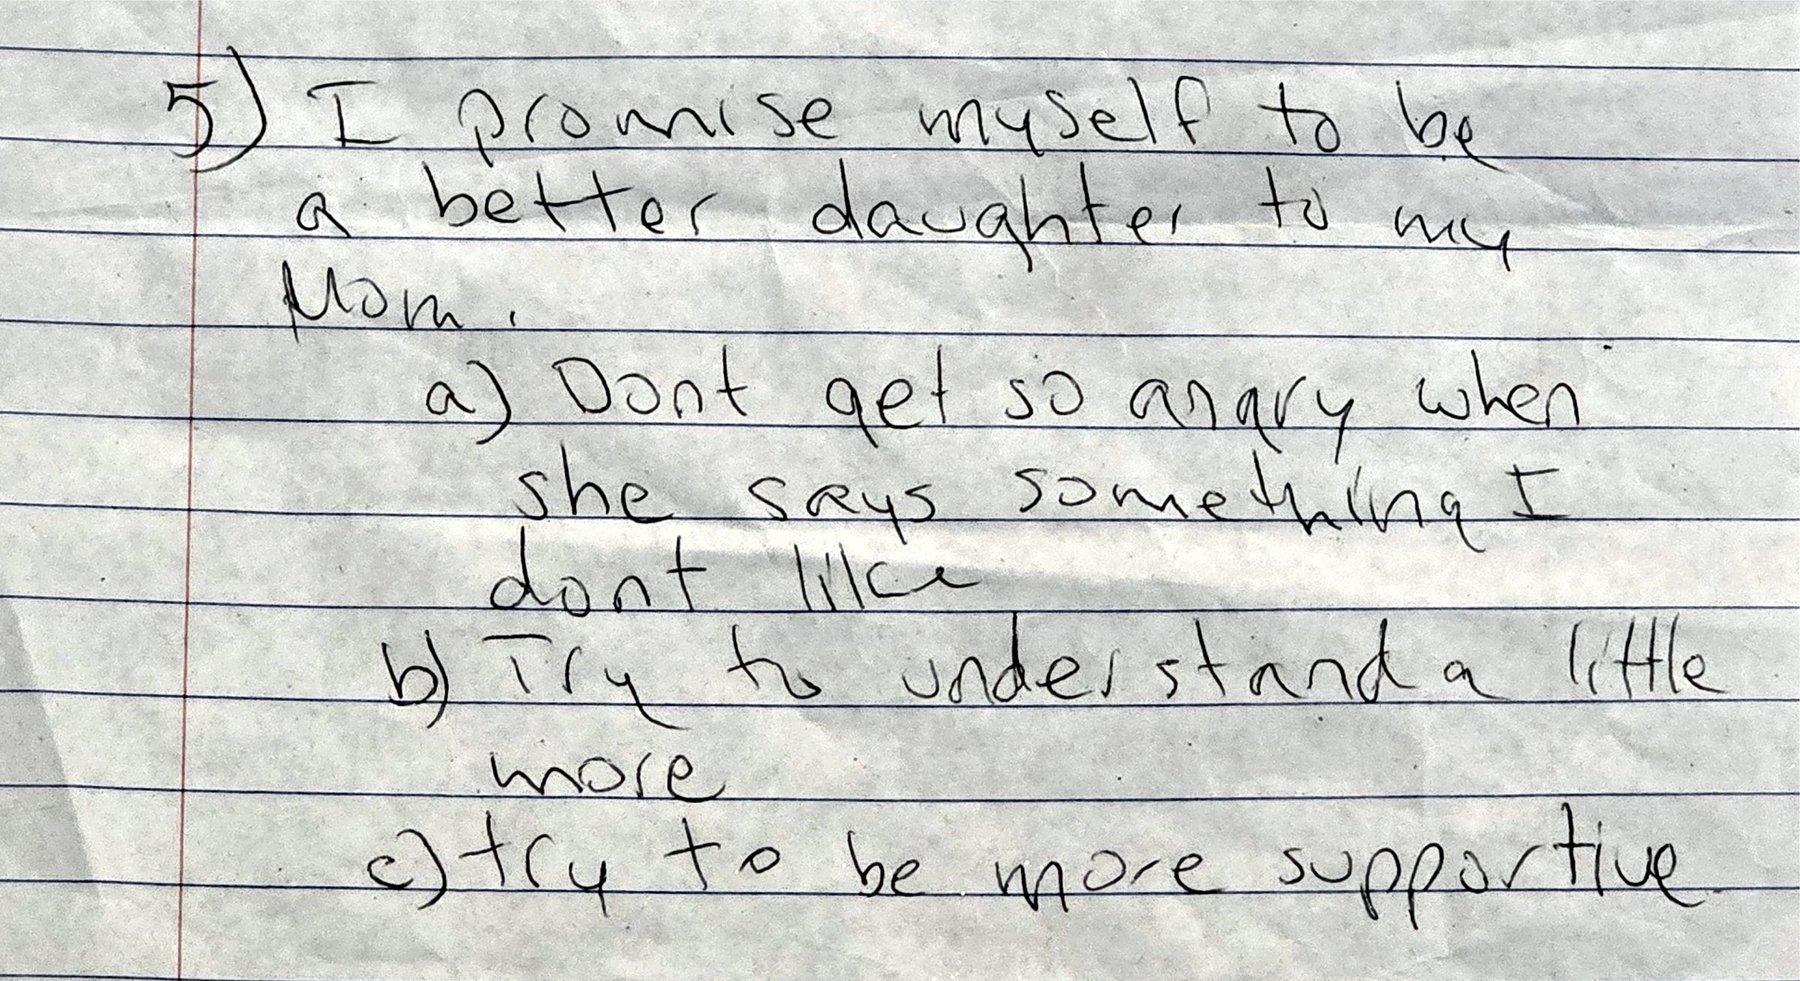 5) I promise myself to be
a better daughter to my
Mom.
a) Dont get so angry when
she says something I
dont like
b) Try to understand a little
more
c) try to be more supportive